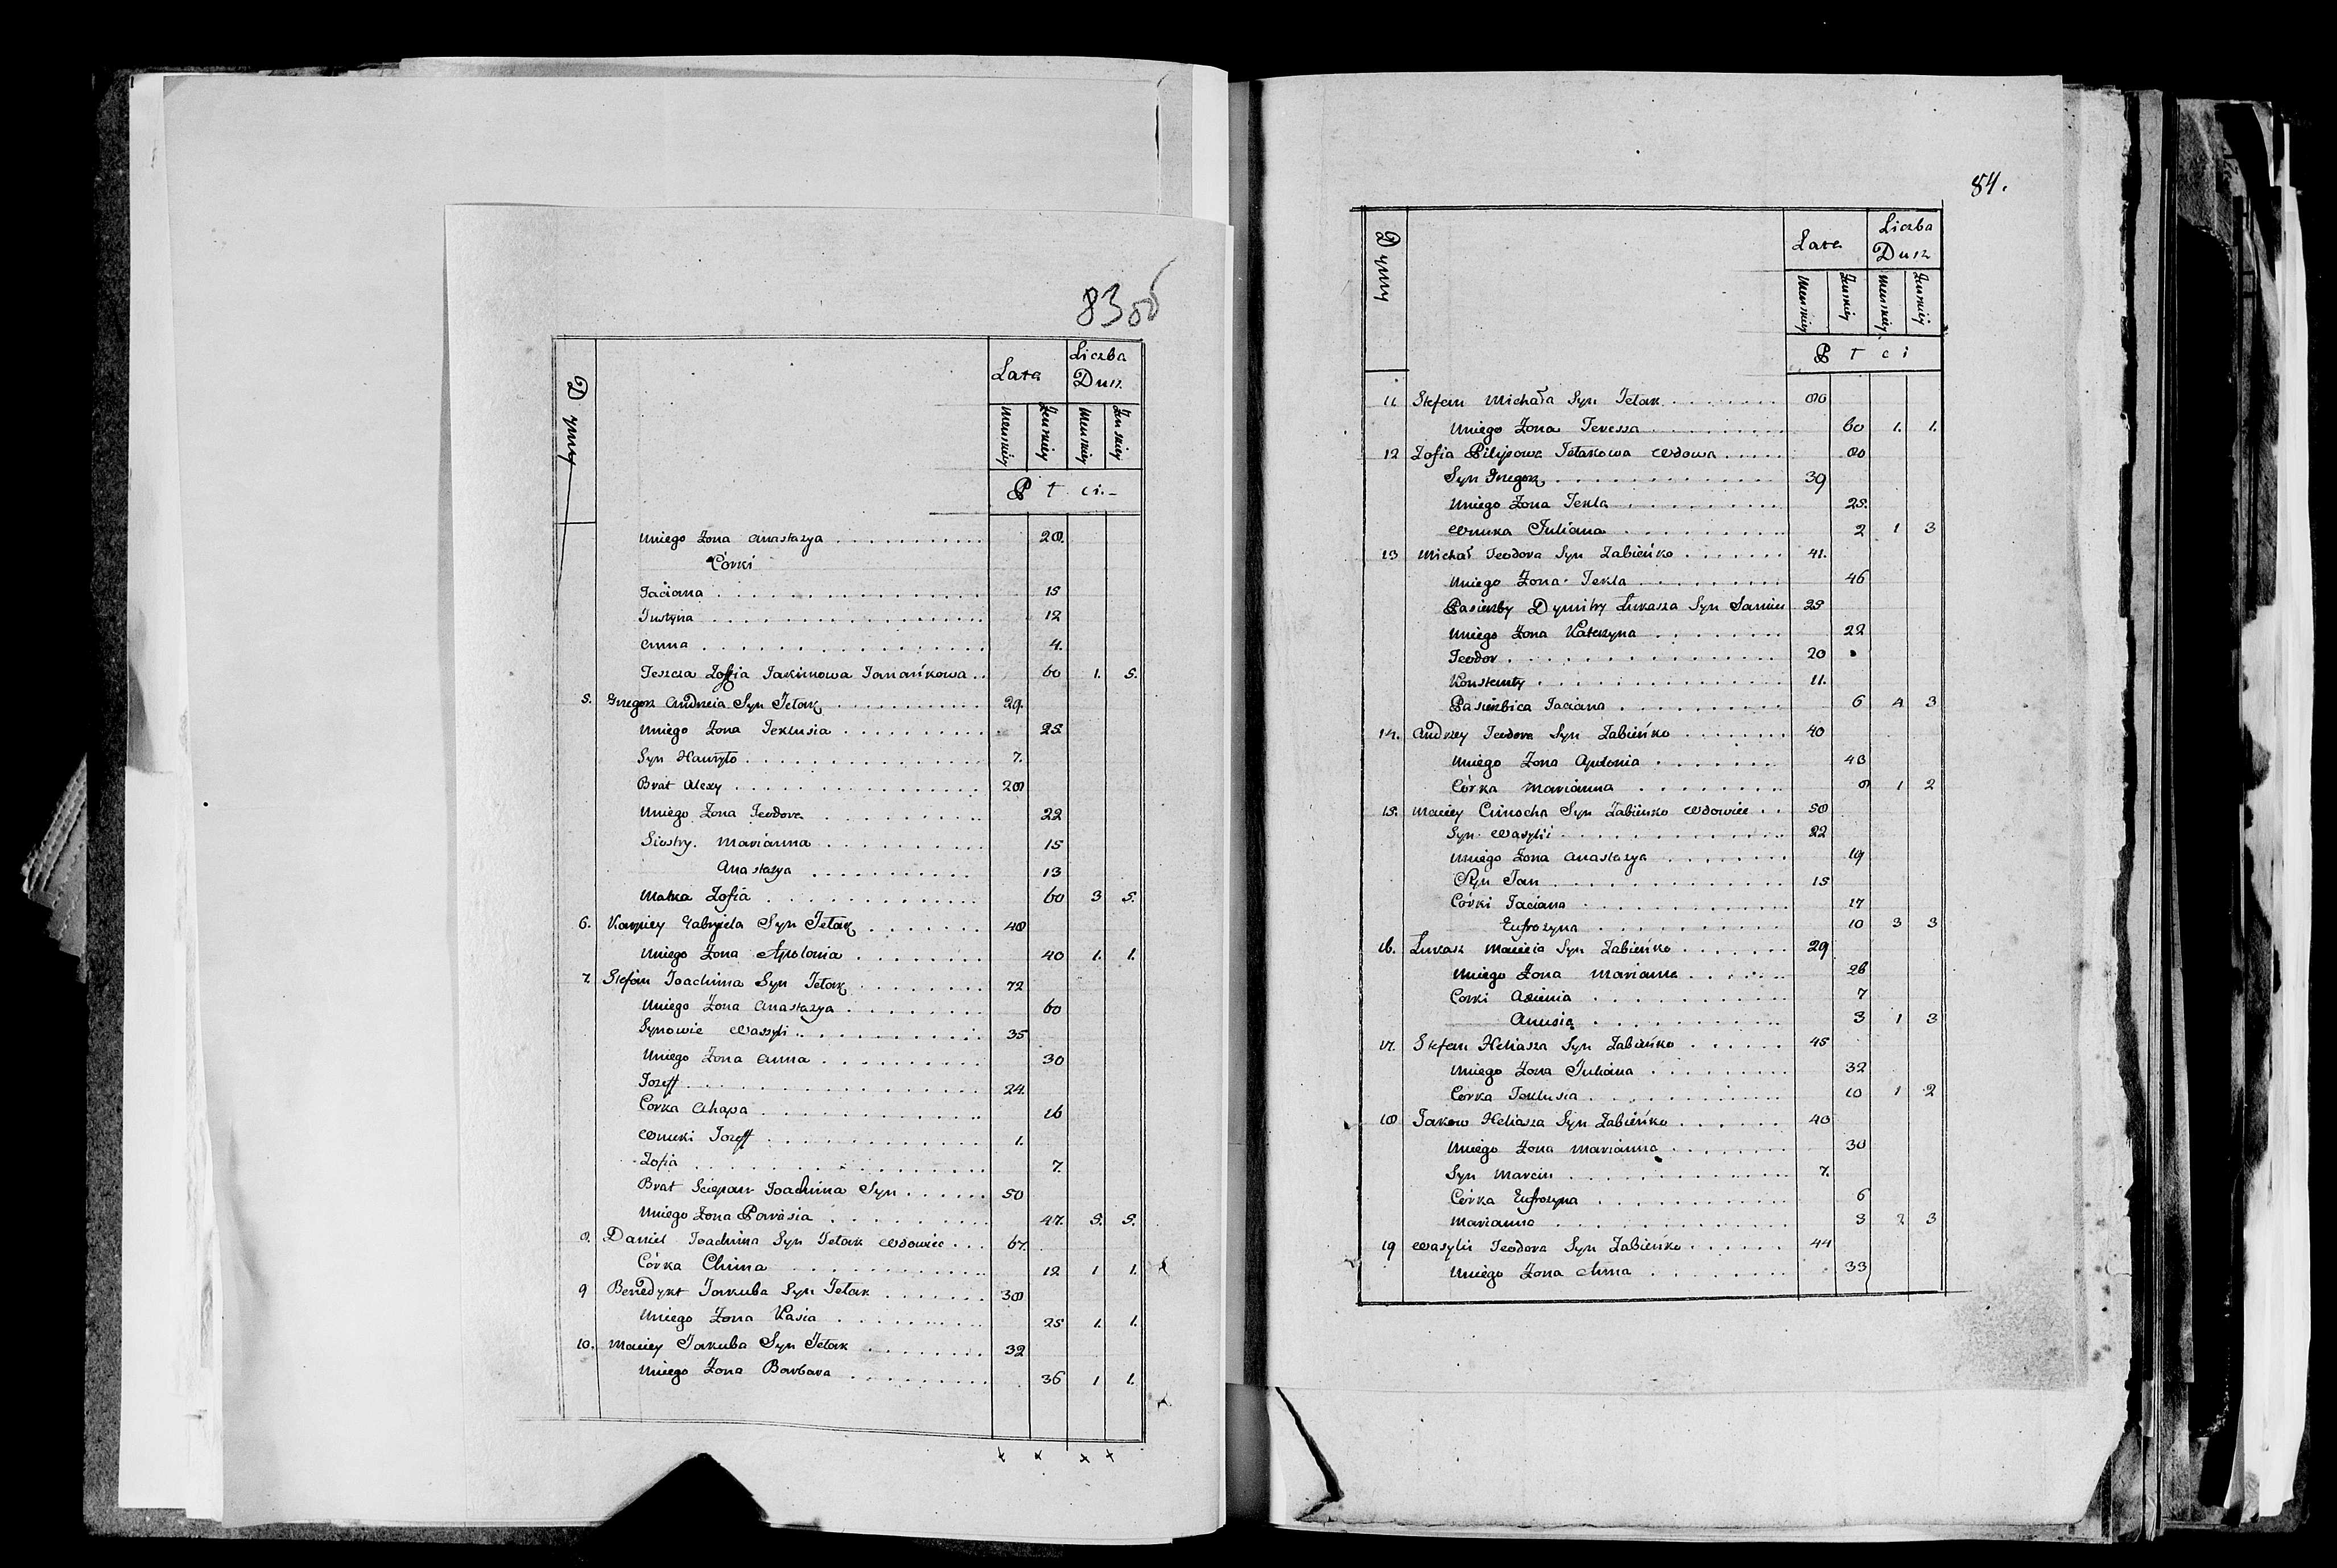 83 об
Dymy
Lata
Liczba Dusz
Menskiey
Żenskiey
Menskiey
Żenskiey
Płci.-
Uniego Żona Anastazya 28.
Córki
Taciana 15
Justyna 12
Anna 4.
Teszcza Zoffia Jakimowa 60 1. 5.
5. Grzegorz Andrzeia Syn Tetak 29.
Uniego Żona Teklusia 25.
Syn Hawryło 7.
Brat Alexy 28
Uniego Żona Teodora 22
Siostry. Marianna 15
Anastazya 13
Matka Zofia 60 3 5.
6. Karpiey Gabryiela Syn Tetak 48
Uniego Żona Apolonia 40 1. 1.
7. Stefan Joachima Syn Tetak 72
Uniego Żona Anastazya 60
Synowie Wassyli 35
Uniego Żona Anna 30
Jozeff 24.
Corka Ahapa 16
Wnuki Jozeff 1.
Zofia 7.
Brat Sciepan Joachima Syn 50
Uniego Żona Parasia 47. 5. 5.
8. Daniel Joachima Syn Tetak Wdowiec 67.
Córka Chima 12 1 1.
9 Benedykt Jakuba Syn Tetak 38
Uniego Żona Kasia 25 1. 1.
10. Maciey Jakuba Syn Tetak 32
Uniego Żona Barbara 36 1 1.
84.
Dymy
Lata
Liczba Dusz
Menskiey
Żenskiey
Menskiey
Żenskiey
Płci
11 Stefan Michała Syn Tetak 88
Uniego Żona Teressa 60 1. 1.
12 Zofia Pilipowa Tetakowa Wdowa 80
Syn Grzegorz 39
Uniego Żona Tekla 25.
Wnuka Juliana 2 1 3
13 Michał Teodora Syn Żabieńko 41.
Uniego Żona Tekla 46
Pasierby Dymitry Łukasza Syn 25
Uniego Żona Katerzyna 22
Teodor 20
Konstanty 11.
Pasierbica Taciana 6 4 3
14. Andrzey Teodora Syn Żabieńko 40
Uniego Żona Apolonia 43
Córka Marianna 8 1 2
15. Maciey Syn Żabieńko Wdowiec 58
Syn Wasylii 22
Uniego Żona Anastazya 19
Syn Jan 15
Córki Taciana 17
Eufrozyna 10 3 3
16. Łukasz Macieia Syn Żabieńko 29
Uniego Żona Marianna 26
Corki Axienia 7
Anusia 3 1 3
17. Stefan Heliasza Syn Żabieńko 45
Uniego Żona Juliana 32
Córka Teklusia 10 1 2
18 Jakow Heliasza Syn Żabieńko 40
Uniego Żona Marianna 30
Syn Marcin 7.
Córka Eufrozyna 6
Marianna 3 2 3
19 Wasylii Teodora Syn Żabieńko 44
Uniego Żona Anna 33